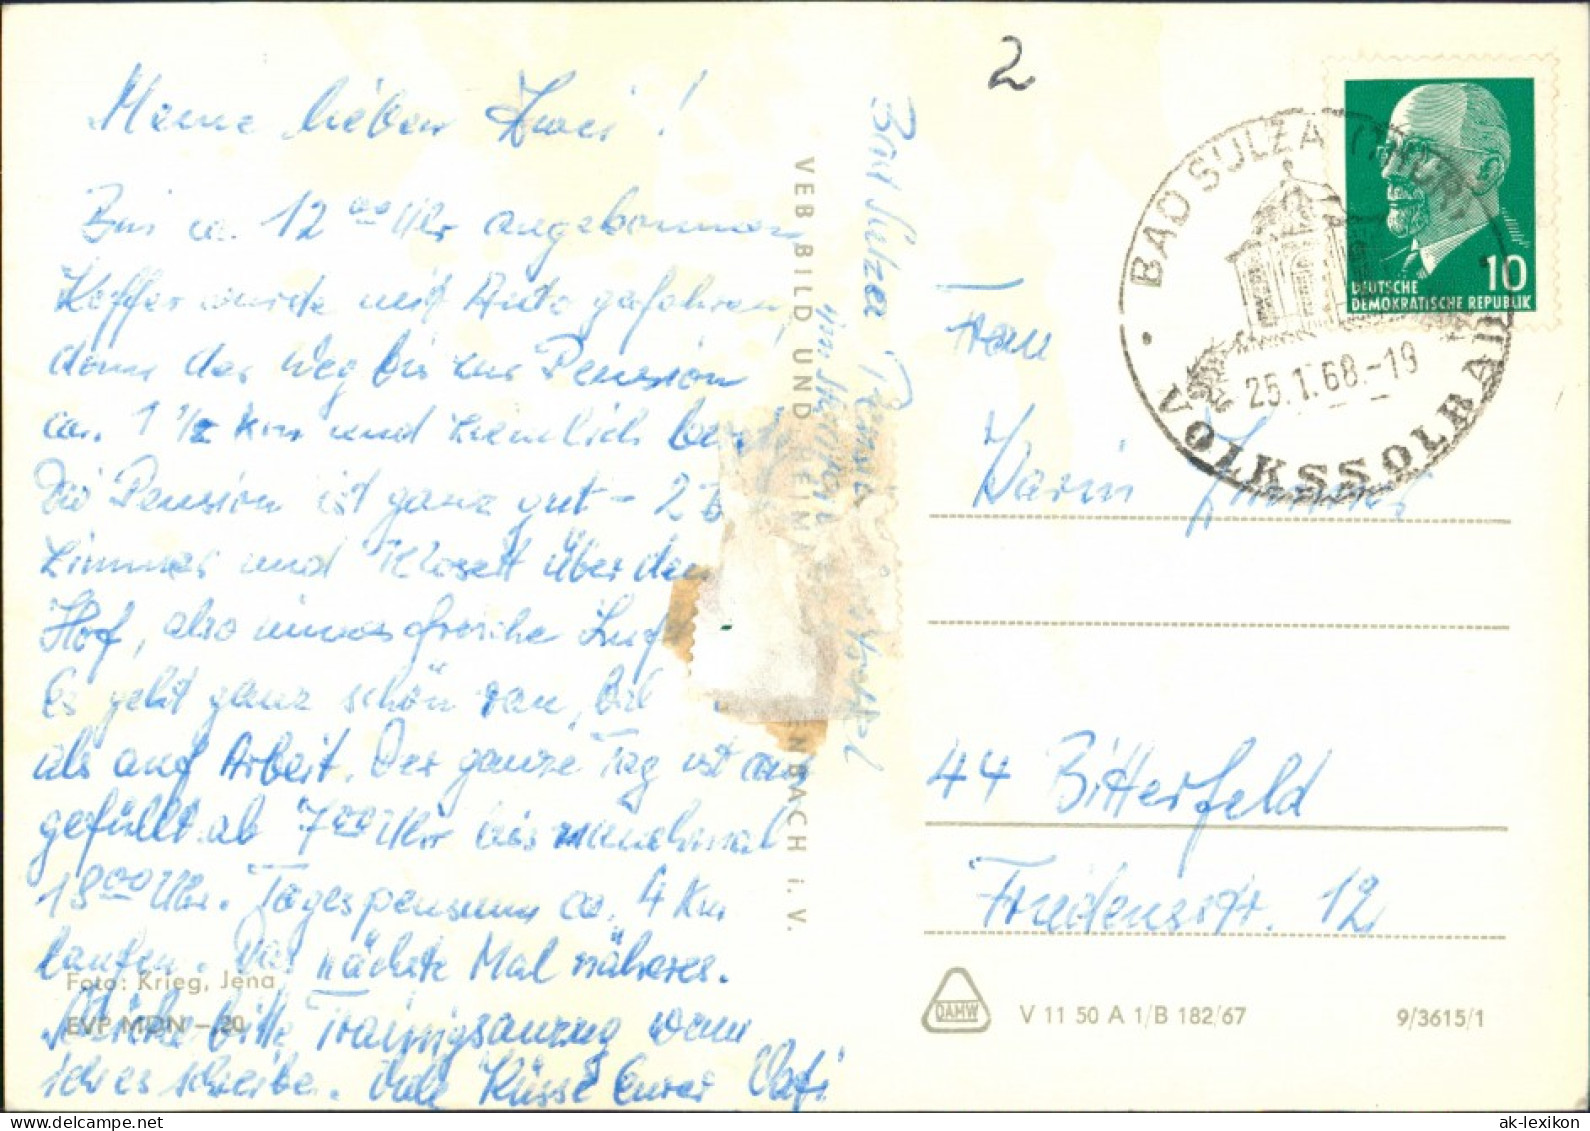 2
Meine lieben Zwei!
Bin ca. 12 00 Uhr angekommen
Koffer wurde mit Auto gefahren,
denn der Weg bis zur Pension
ca. 1 1/2 km und ziemlich
Die Pension ist ganz gut - 2 B
Zimmer und Klosett über den
Hof, also immer frische Luf
Es geht ganz schön ran,
als auf Arbeit. Der ganze Tag ist aus
gefüllt ab 7 00 Uhr bis manchmal
18 00 Uhr. Tagespensum ca. 4 km
laufen. Das nächste Mal näheres.
Schicke bitte Trainigsanzug wenn
ich es schreibe. Viele Küsse Euer Vati
Foto: Krieg, Jena
EVP MDN - 20
VEB BILD UND HEIM ENBACH i. V.
Bad Sulza
BAD SULZA (THÜR)
25.1.68.-19
VOLKSSOLBAD
10
DEUTSCHE
DEMOKRATISCHE REPUBLIK
Frau
Karin
44 Bitterfeld
Friedensstr. 12
DAMW
V 11 50 A 1/B 182/67
9/3615/1
ak-lexikon